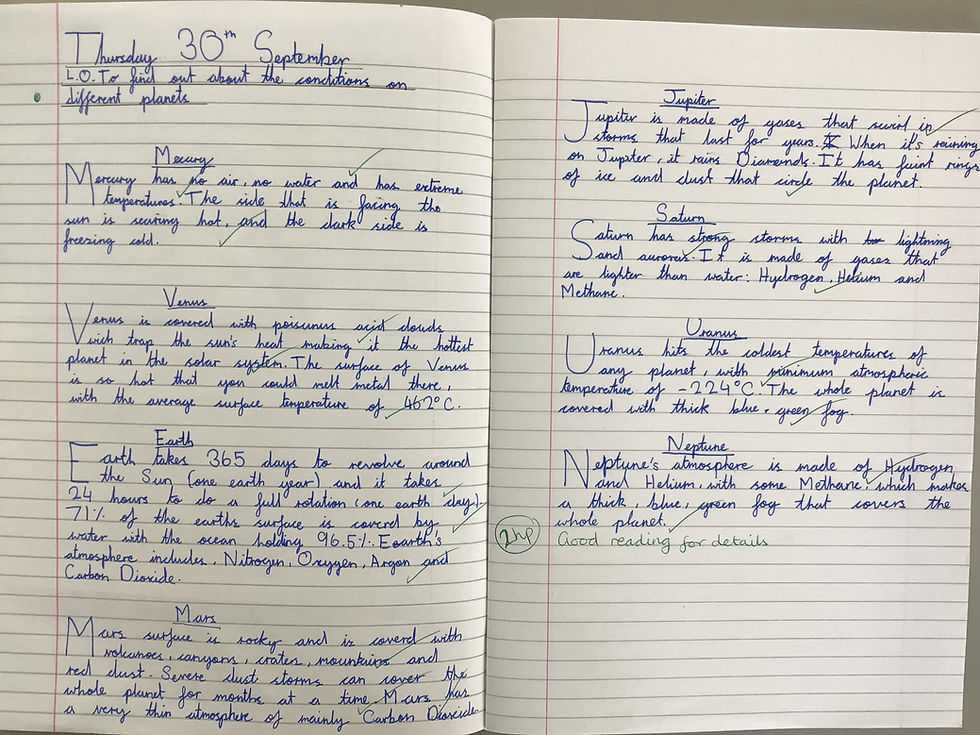 Thursday 30th September
L.O. To find out about the conditions on
different planets
Mecury
Mercury has no air, no water and has extreme
temperatures. The side that is facing the
sun is searing hot, and the dark side is
freezing cold.
Venus
Venus is covered with poisunus acid clouds
wich trap the sun's heat making it the hottest
planet in the solar system. The surface of Venus
is so hot that you could melt metal there,
with the average surface temperature of 462°C.
Earth
Earth takes 365 days to revolve around
the Sun (one earth year) and it takes
24 hours to do a full rotation (one earth day).
71% of the earths surface is coverd by
water with the ocean holding 96.5%. Eoarth's
atmosphere includes, Nitrogen, Oxygen, Argon and
Carbon Dioxide.
Mars
Mars surface is rocky and is coverd with
volcanoes, canyons, crates, mountains and
red dust. Severe dust storms can cover the
whole planet for months at a time. Mars has
a very thin atmosphere of mainly Carbon Dioxide.
Jupiter
Jupiter is made of gases that swirl in
storms that last for years. When it's raining
on Jupiter, it rains Diamonds. It has faint rings
of ice and dust that circle the planet.
Saturn
Saturn has strong storms with lightning
and auroras. It is made of gases that
are lighter than water: Hydrogen, Helium and
Methane.
Uranus
Uranus hits the coldest temperatures of
any planet, with minimum atmospheric
temperature of -224°C. The whole planet is
covered with thick blue, green fog.
Neptune
Neptune's atmosphere is made of Hydrogen
and Helium, with some Methane, which makes
a thick blue, green fog that covers the
whole planet.
2hp Good reading for details